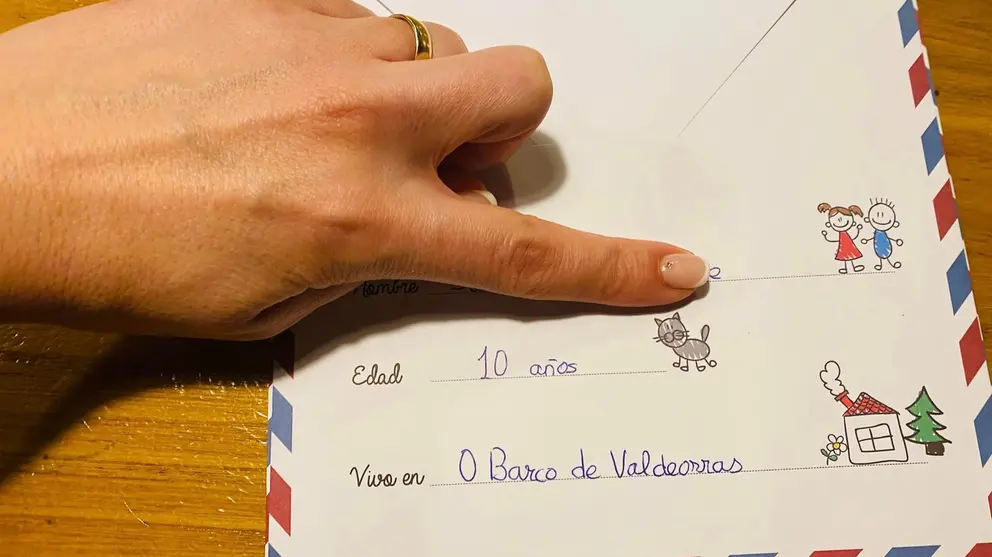 Nombre
Edad 10 años
Vivo en O Barco de Valdeorras